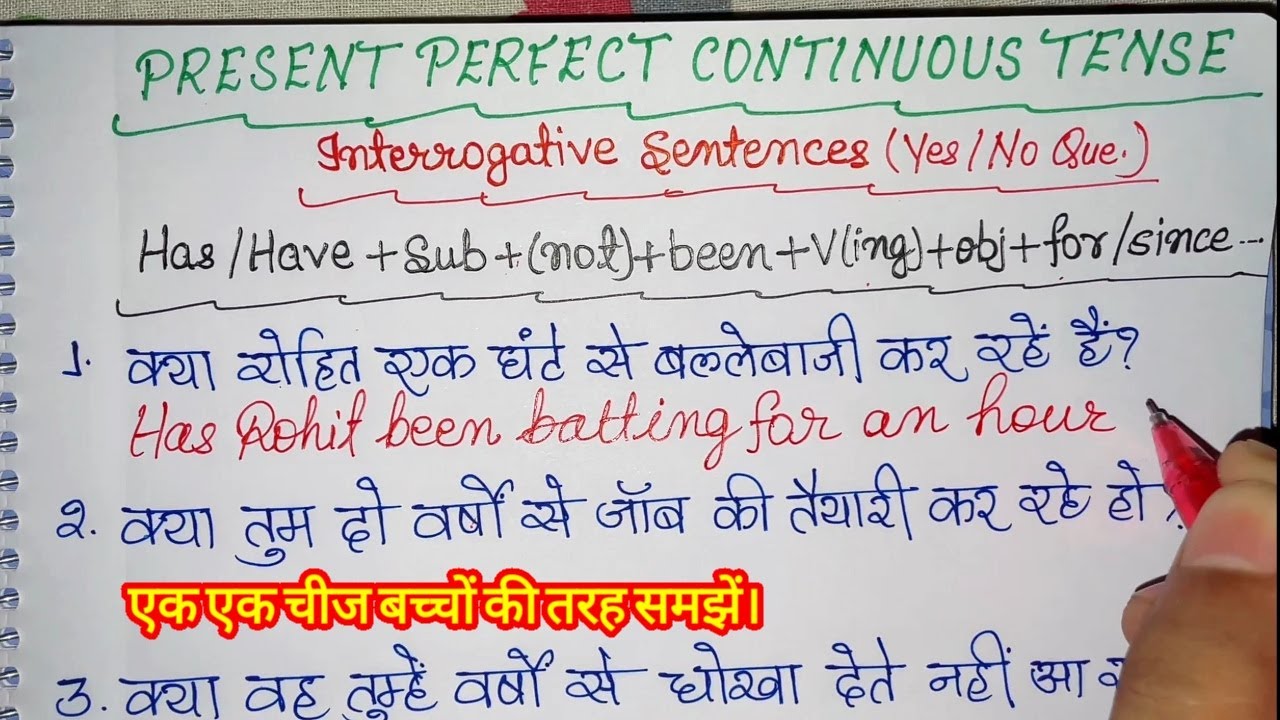 PRESENT PERFECT CONTINUOUS TENSE
Interrogative Sentences (Yes/No Que.)
Has/Have + Sub + (not) + been + V(ing) + obj + for/since...
1. क्या रोहित एक घंटे से बल्लेबाजी कर रहें हैं?
Has Rohit been batting for an hour
2. क्या तुम दो वर्षों से जॉब की तैयारी कर रहे हो?
एक एक चीज बच्चों की तरह समझें।
3. क्या वह तुम्हें वर्षों से धोखा देते नहीं आ